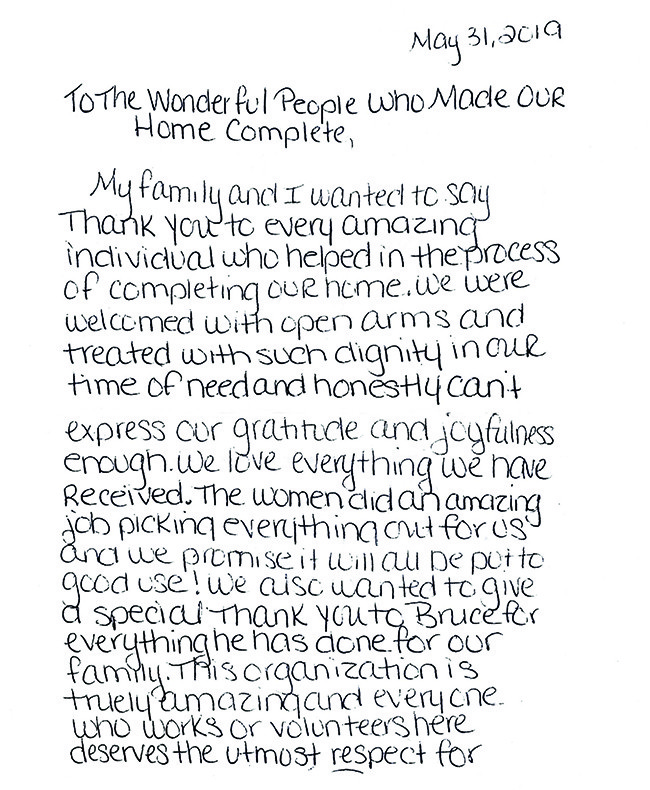 May 31, 2019
To The Wonderful People Who Made Our
Home Complete,
My family and I wanted to say
Thank you to every amazing
individual who helped in the process
of completing our home. We were
welcomed with open arms and
treated with such dignity in our
time of need and honestly can't
express our gratitude and joyfulness
enough. We love everything we have
Received. The women did an amazing
job picking everything out for us
and we promise it will all be put to
good use! We also wanted to give
a special Thank you to Bruce for
everything he has done for our
family. This organization is
truely amazing and everyone
who works or volunteers here
deserves the utmost respect for